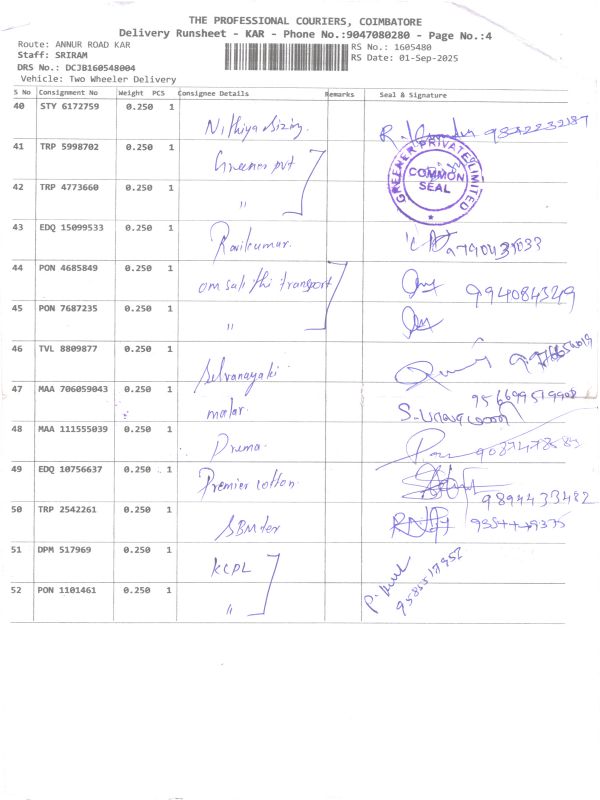 THE PROFESSIONAL COURIERS, COIMBATORE
Delivery Runsheet - KAR - Phone No.:9047080280 - Page No.:4
Route: ANNUR ROAD KAR
RS No.: 1605480
Staff: SRIRAM
RS Date: 01-Sep-2025
DRS No.: DCJB160548004
Vehicle: Two Wheeler Delivery
S No Consignment No Weight PCS Consignee Details Remarks Seal & Signature
40 STY 6172759 0.250 1
Nithiya sizing.
41 TRP 5998702 0.250 1
Greener pvt
GREENER PRIVATE LIMITED
COMMON SEAL
42 TRP 4773660 0.250 1
"
43 EDQ 15099533 0.250 1
Ravikumar.
44 PON 4685849 0.250 1
om sakthi transport
45 PON 7687235 0.250 1
"
46 TVL 8809877 0.250 1
Selvanayaki
47 MAA 706059043 0.250 1
malar.
48 MAA 111555039 0.250 1
Prema.
49 EDQ 10756637 0.250 1
Premier cotton.
9894433482
50 TRP 2542261 0.250 1
SBM tex
51 DPM 517969 0.250 1
KCPL
52 PON 1101461 0.250 1
"